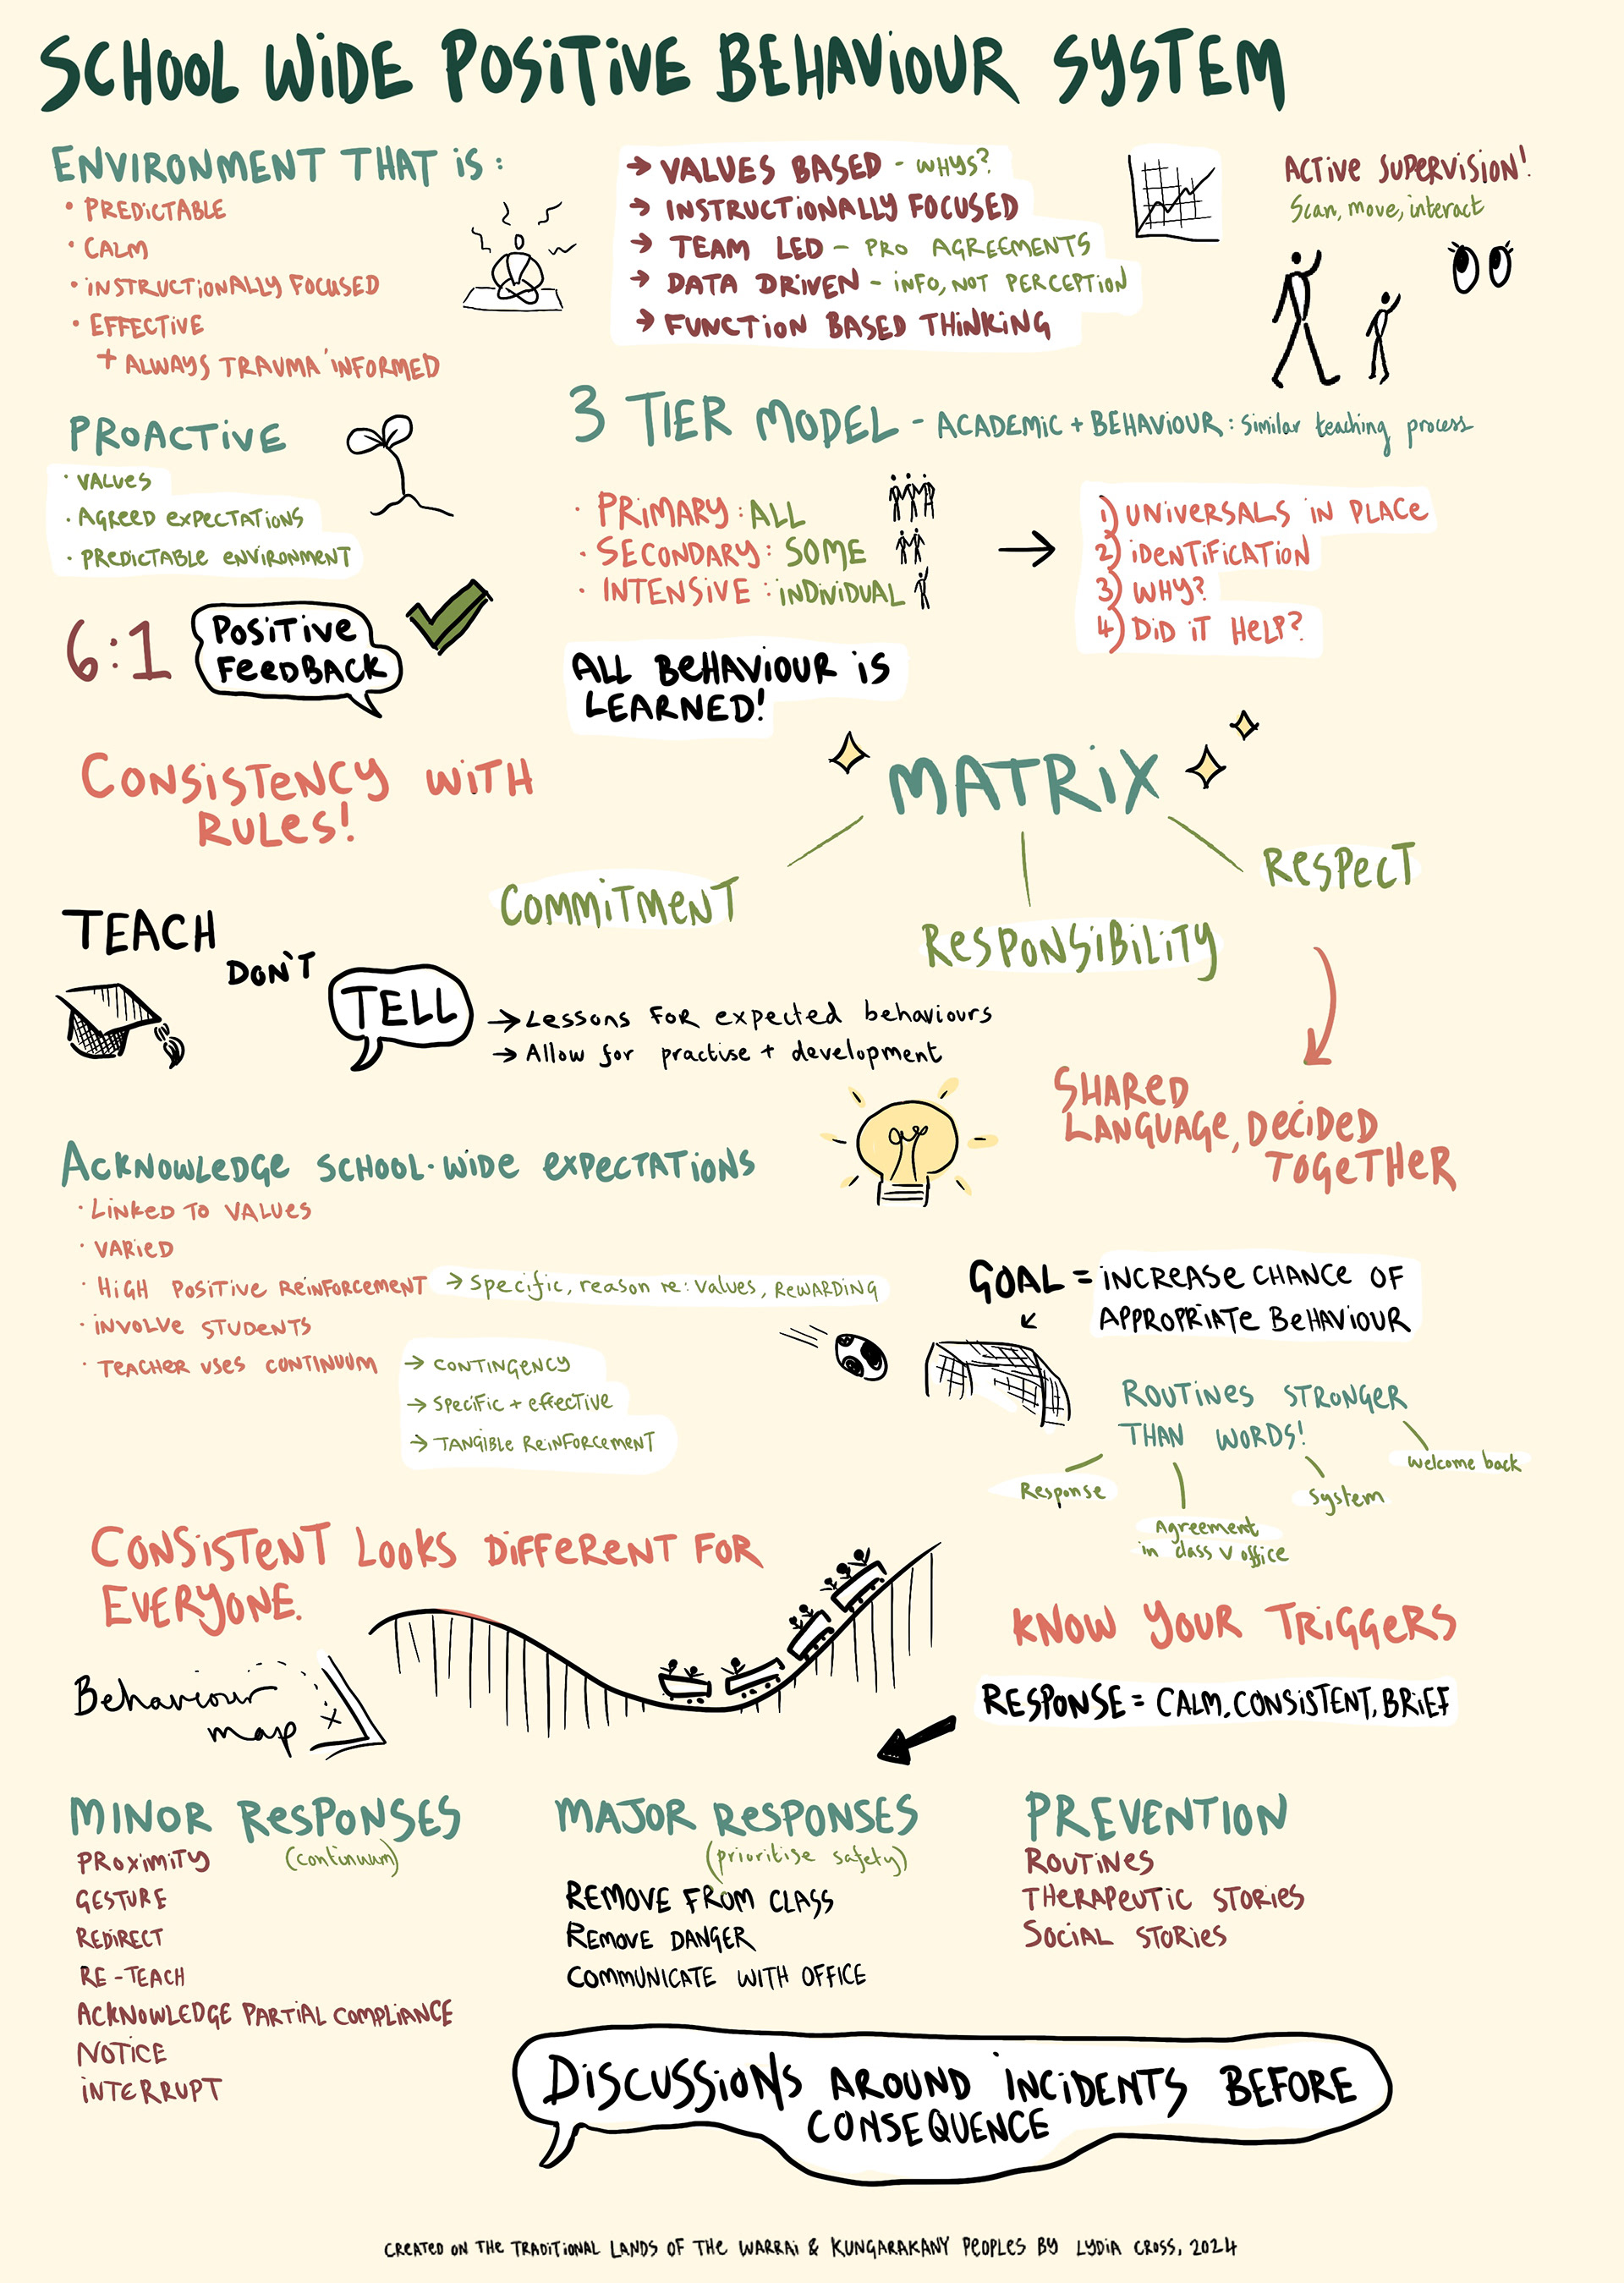 SCHOOL WIDE POSITIVE BEHAVIOUR SYSTEM
ENVIRONMENT THAT IS:
• PREDICTABLE
• CALM
• INSTRUCTIONALLY FOCUSED
• EFFECTIVE
+ ALWAYS TRAUMA INFORMED
→ VALUES BASED - WHYS?
→ INSTRUCTIONALLY FOCUSED
→ TEAM LED - PRO AGREEMENTS
→ DATA DRIVEN - INFO, NOT PERCEPTION
→ FUNCTION BASED THINKING
ACTIVE SUPERVISION!
Scan, move, interact
PROACTIVE
• VALUES
• AGREED EXPECTATIONS
• PREDICTABLE ENVIRONMENT
6:1
POSITIVE
FEEDBACK
3 TIER MODEL - ACADEMIC + BEHAVIOUR: Similar teaching process
• PRIMARY: ALL
• SECONDARY: SOME
• INTENSIVE: INDIVIDUAL
→
1) UNIVERSALS IN PLACE
2) IDENTIFICATION
3) WHY?
4) DID IT HELP?
ALL BEHAVIOUR IS
LEARNED!
CONSISTENCY WITH
RULES!
MATRIX
COMMITMENT
RESPONSIBILITY
RESPECT
SHARED
LANGUAGE, DECIDED
TOGETHER
TEACH
DON'T
TELL
→ Lessons FOR expected behaviours
→ Allow for practise + development
ACKNOWLEDGE SCHOOL-WIDE EXPECTATIONS
• LINKED TO VALUES
• VARIED
• HIGH POSITIVE REINFORCEMENT → Specific, reason re: values, REWARDING
• INVOLVE STUDENTS
• TEACHER USES CONTINUUM → CONTINGENCY
→ SPECIFIC + effective
→ TANGIBLE REINFORCEMENT
GOAL = INCREASE CHANCE OF
APPROPRIATE BEHAVIOUR
ROUTINES STRONGER
THAN WORDS!
Response
Agreement
in class v office
System
Welcome back
CONSISTENT LOOKS DIFFERENT FOR
EVERYONE.
Behaviour
map
KNOW YOUR TRIGGERS
RESPONSE = CALM, CONSISTENT, BRIEF
MINOR RESPONSES
(continuum)
PROXIMITY
GESTURE
REDIRECT
RE-TEACH
ACKNOWLEDGE PARTIAL COMPLIANCE
NOTICE
INTERRUPT
MAJOR RESPONSES
(prioritise safety)
REMOVE FROM CLASS
REMOVE DANGER
COMMUNICATE WITH OFFICE
PREVENTION
ROUTINES
THERAPEUTIC STORIES
SOCIAL STORIES
DISCUSSIONS AROUND INCIDENTS BEFORE
CONSEQUENCE
CREATED ON THE TRADITIONAL LANDS OF THE WARRAI & KUNGARAKANY PEOPLES BY LYDIA CROSS, 2024